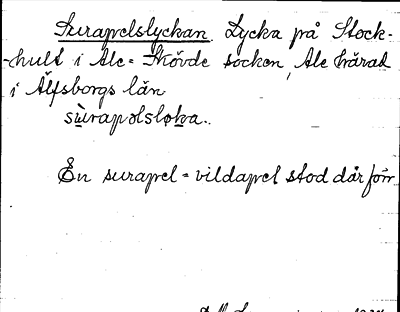 Surapelslyckan. Lycka på Stock-
-hult i Ale-Skövde socken, Ale härad
i Älfsborgs län
surapəlsløka.
En surapel = vildapel stod där förr